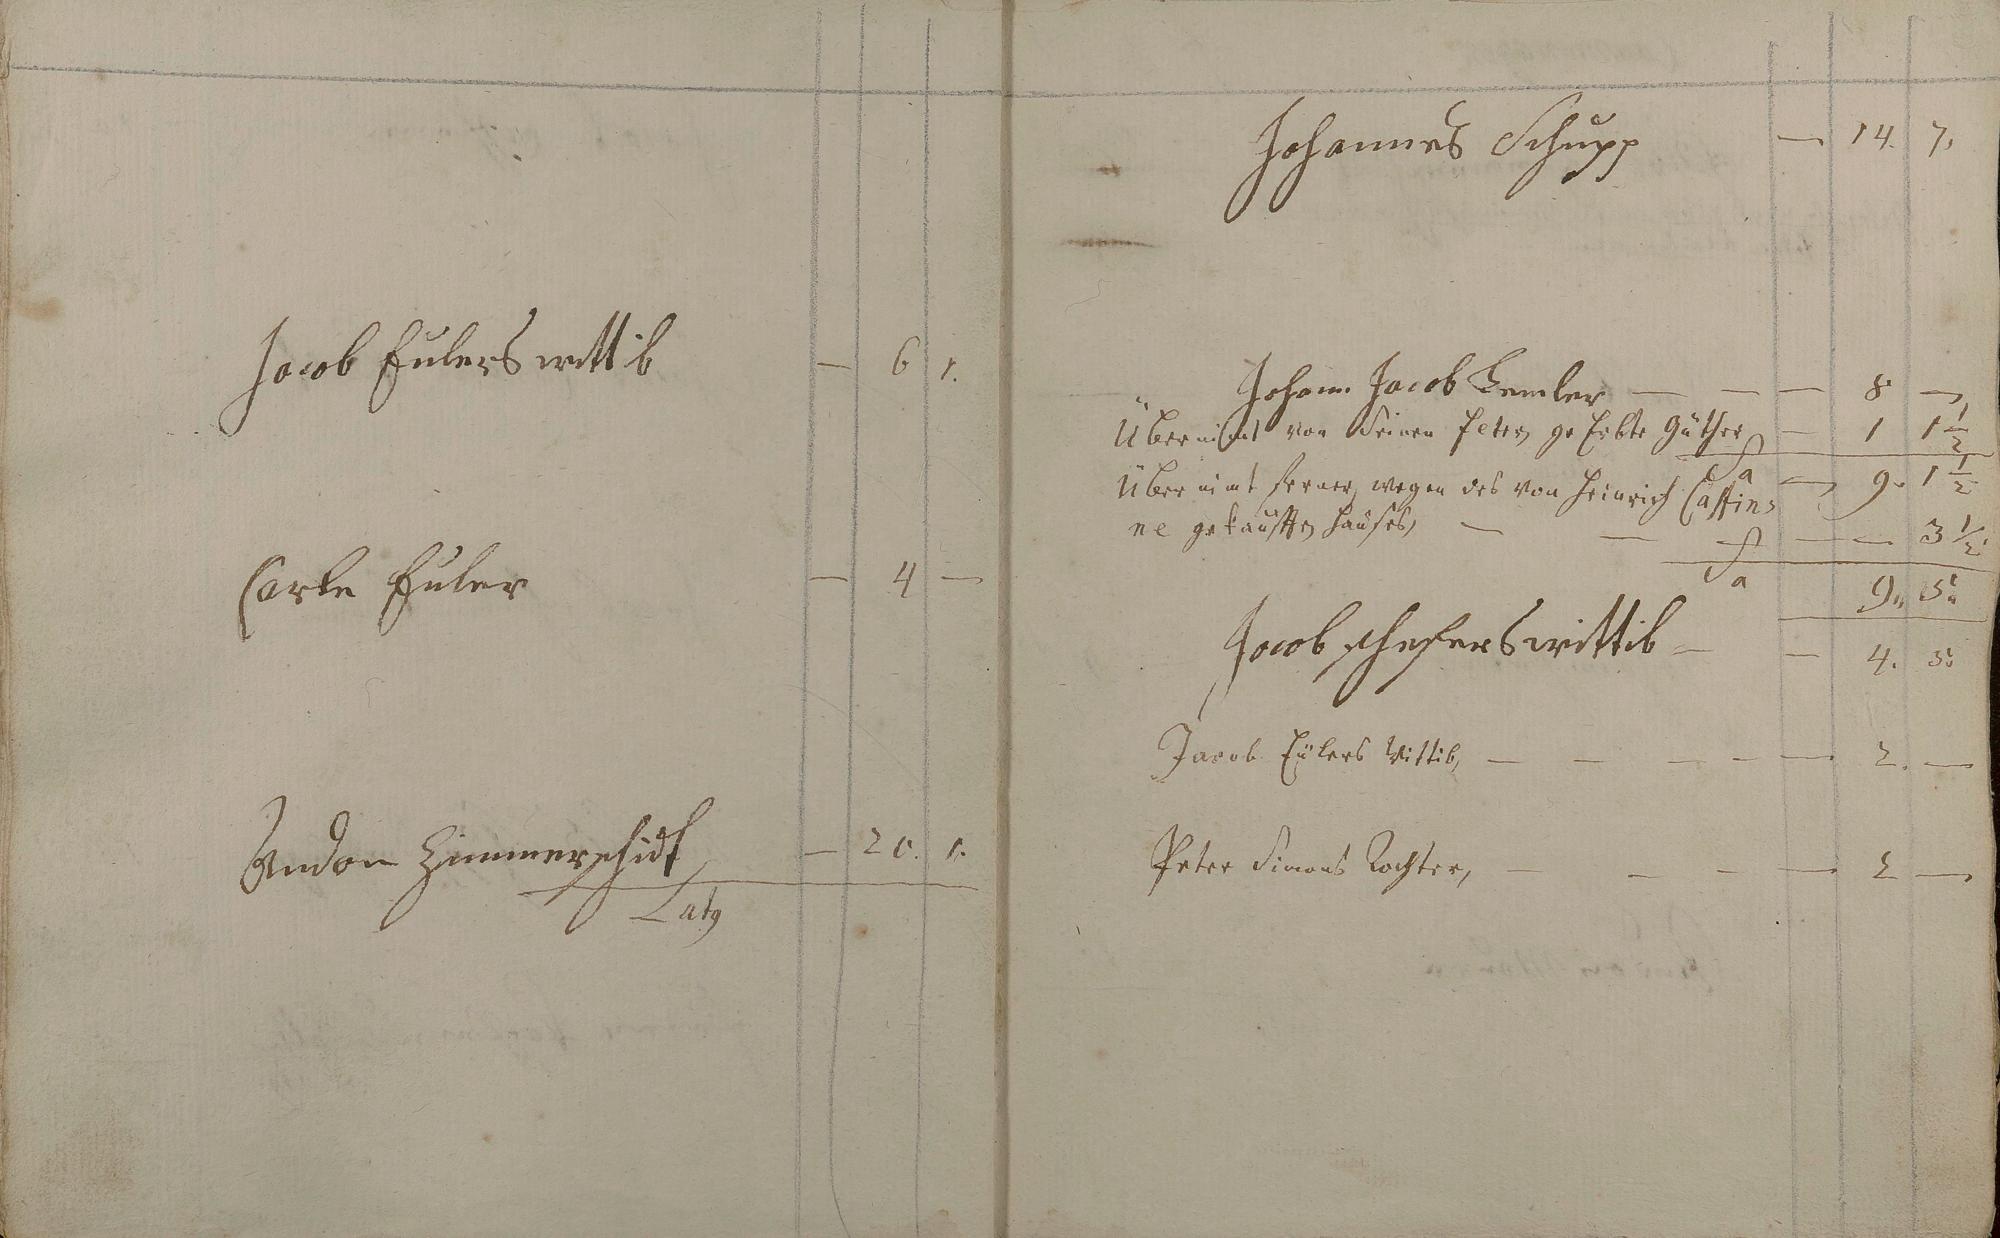 Jacob Eulers wittib — 6 1.
Carle Euler — 4 —
Andon Zimmerschidt — 20. 1.
Latg
Johannes Schupp — 14. 7.
Johann Jacob Lemler — — — 8 —
Übernimt von Seinen Peter ge Erbte Güther — 1 1 1/2
Sa — 9. 1 1/2
Übernimt ferner wegen des von Heinrich Cassin=
ne gekaufften Haußes, — — — — 3 1/2
Sa 9. 5.
Jacob schefers wittib — — 4. 3.
Jacob Eülers Wittib, — — — — — 2. —
Peter Simons Tochter, — — — — 2 —